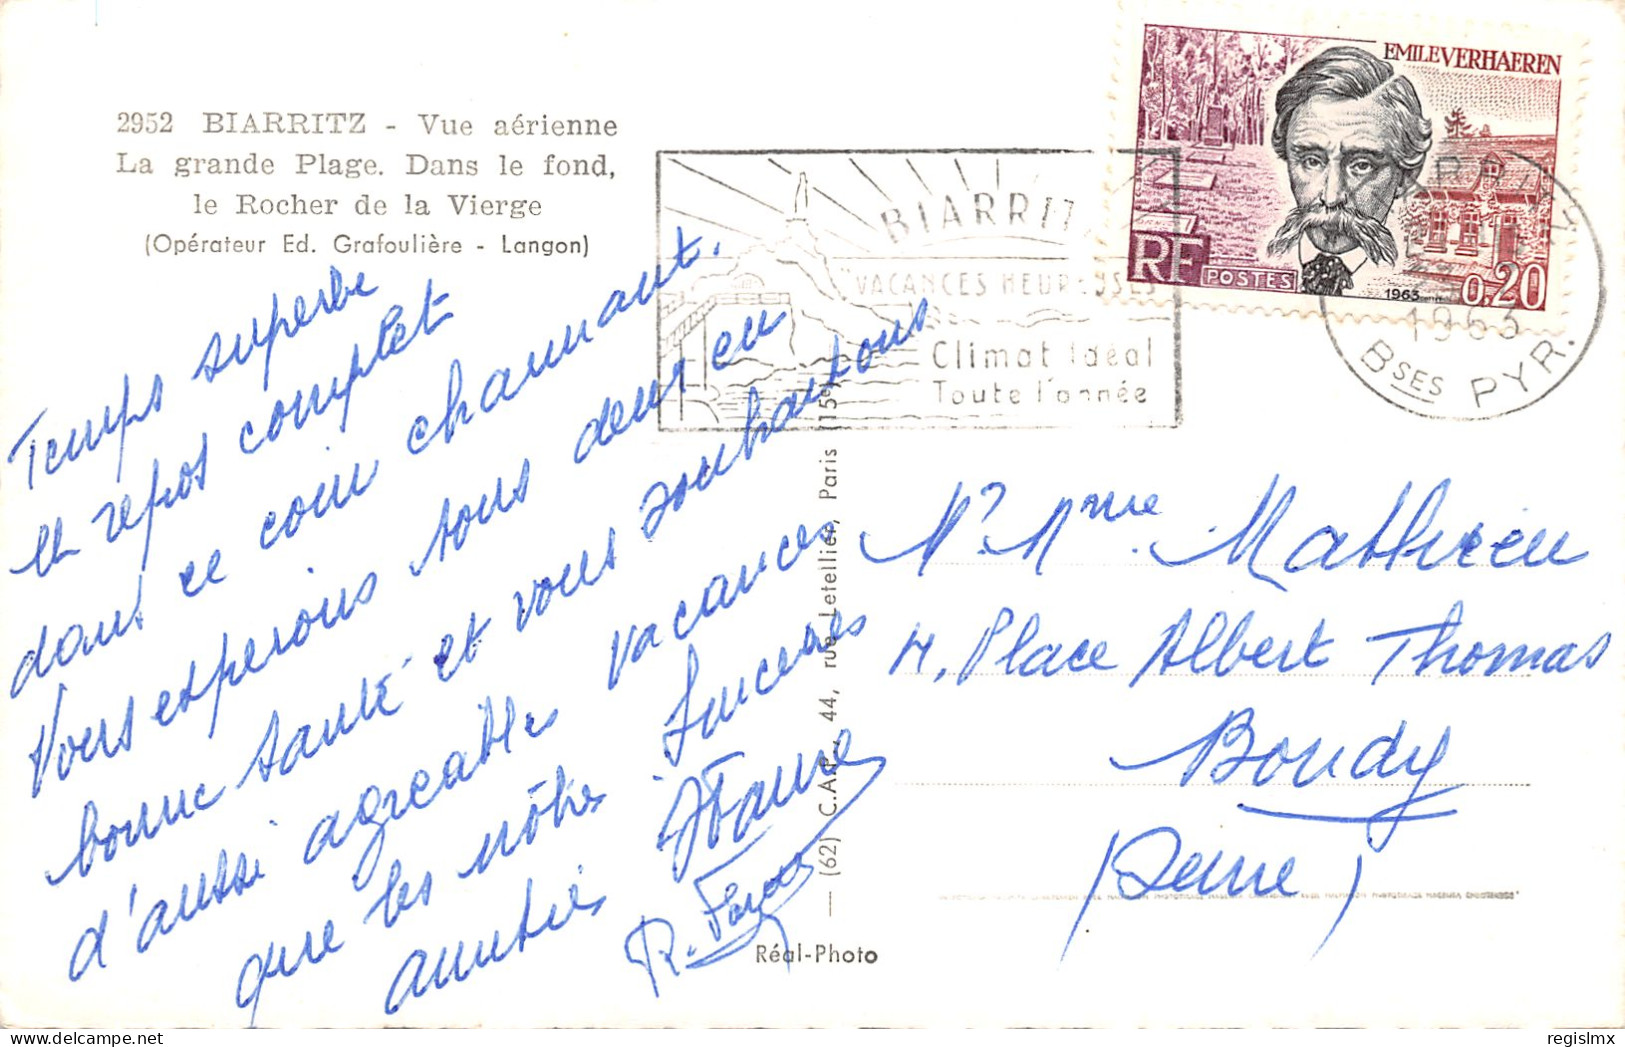 2952 BIARRITZ - Vue aérienne
La grande Plage. Dans le fond,
le Rocher de la Vierge
(Opérateur Ed. Grafoulière - Langon)
EMILE VERHAEREN
RF
POSTES
1963
0.20
BIARRITZ
VACANCES HEUREUSES
Climat Idéal
Toute l'année
1963
BSES PYR.
Temps superbe
et repos complet
dans ce coin charmant.
Vous espérons tous deux en
bonne santé et vous souhaitons
d'aussi agréables vacances
que les nôtres Sincères
amitiés
(62) C.A.P. 44, rue Letellier, Paris (15e)
Réal-Photo
Mr. Mme Mathieu
4, Place Albert Thomas
Bondy
(Seine)
regislmx